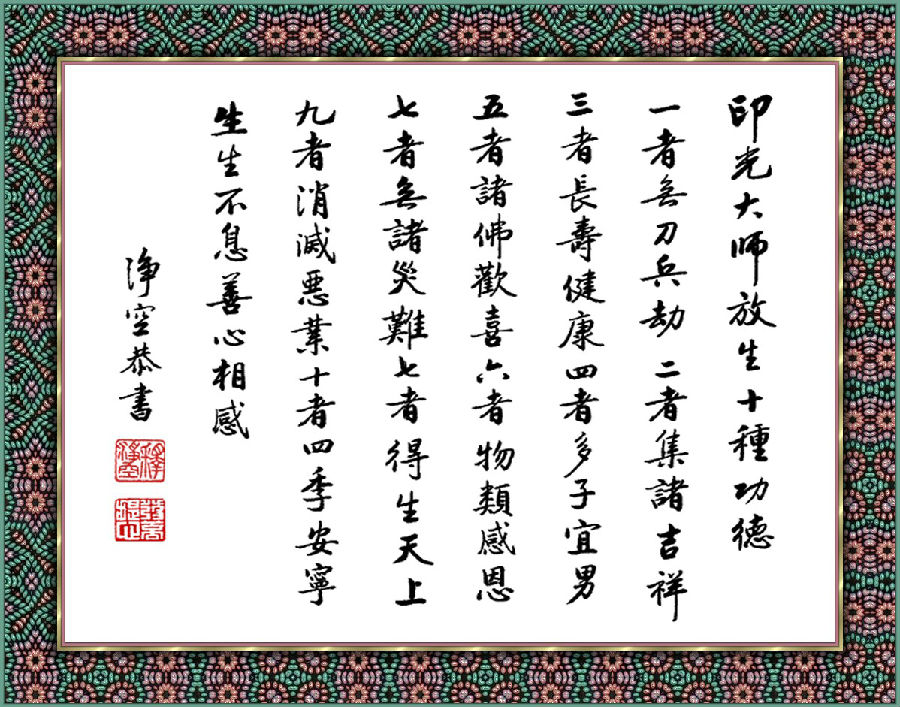 印光大师放生十種功德
一者無刀兵劫二者集諸吉祥
三者長壽健康四者多子宜男
五者諸佛歡喜六者物類感恩
七者無諸災難七者得生天上
九者消滅悪業十者四季安寧
生生不息善心相感
淨空恭書
釋淨空